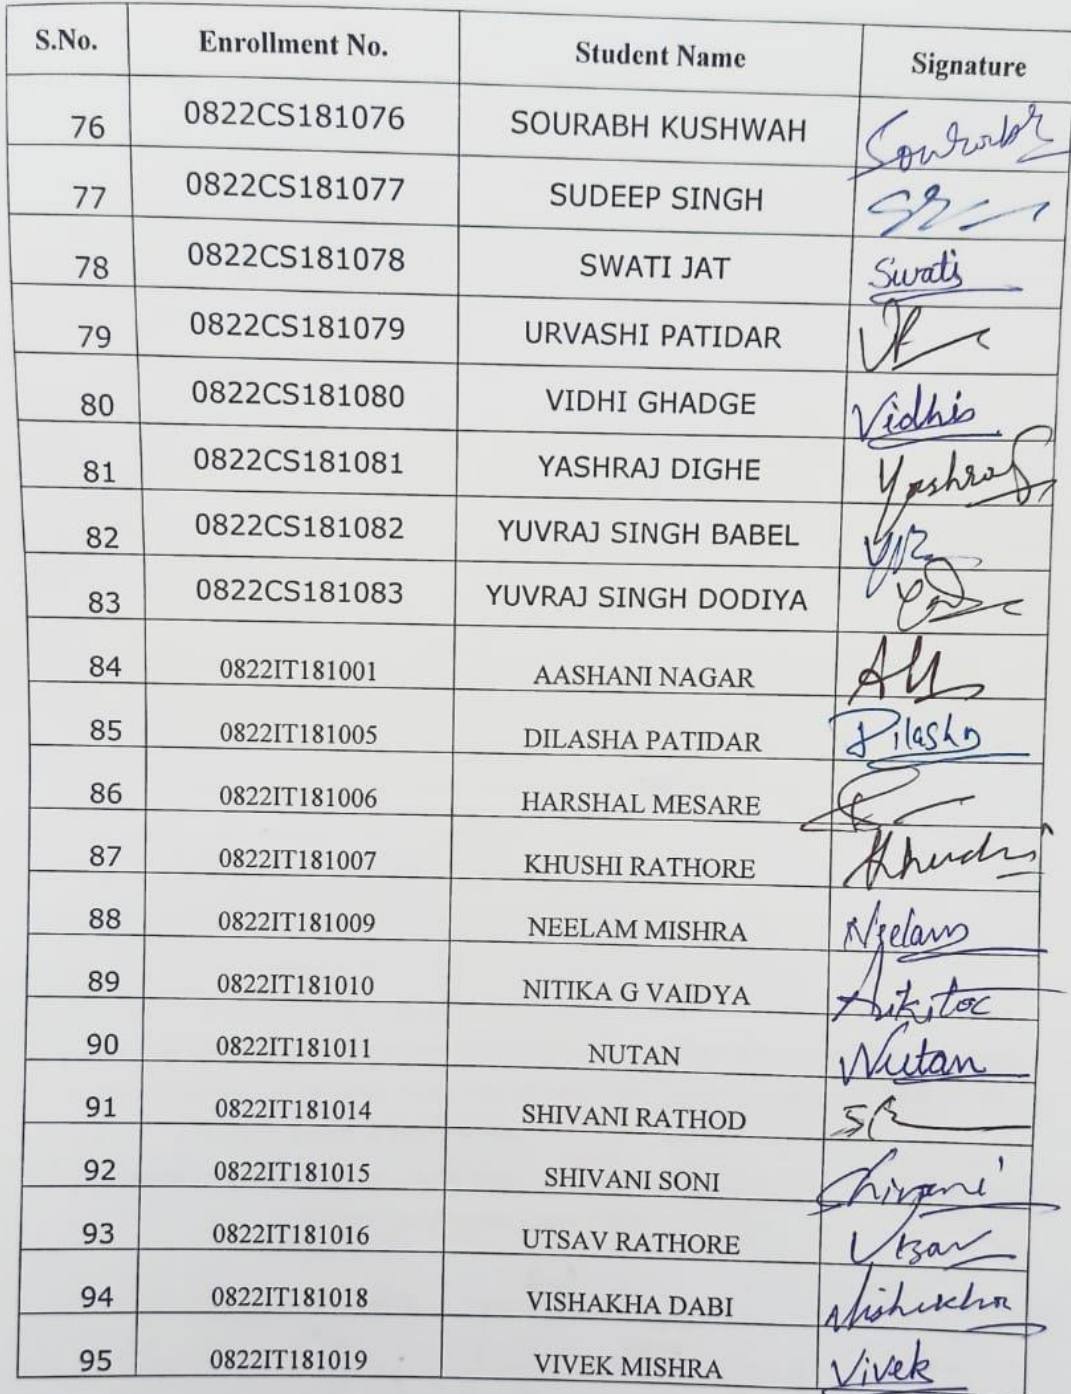 S.No. Enrollment No. Student Name Signature
76 0822CS181076 SOURABH KUSHWAH Sourabh
77 0822CS181077 SUDEEP SINGH
78 0822CS181078 SWATI JAT Swati
79 0822CS181079 URVASHI PATIDAR
80 0822CS181080 VIDHI GHADGE Vidhi
81 0822CS181081 YASHRAJ DIGHE Yashraj
82 0822CS181082 YUVRAJ SINGH BABEL
83 0822CS181083 YUVRAJ SINGH DODIYA
84 0822IT181001 AASHANI NAGAR
85 0822IT181005 DILASHA PATIDAR Dilasha
86 0822IT181006 HARSHAL MESARE
87 0822IT181007 KHUSHI RATHORE
88 0822IT181009 NEELAM MISHRA Neelam
89 0822IT181010 NITIKA G VAIDYA
90 0822IT181011 NUTAN Nutan
91 0822IT181014 SHIVANI RATHOD
92 0822IT181015 SHIVANI SONI Shivani
93 0822IT181016 UTSAV RATHORE Utsav
94 0822IT181018 VISHAKHA DABI Vishakha
95 0822IT181019 VIVEK MISHRA Vivek